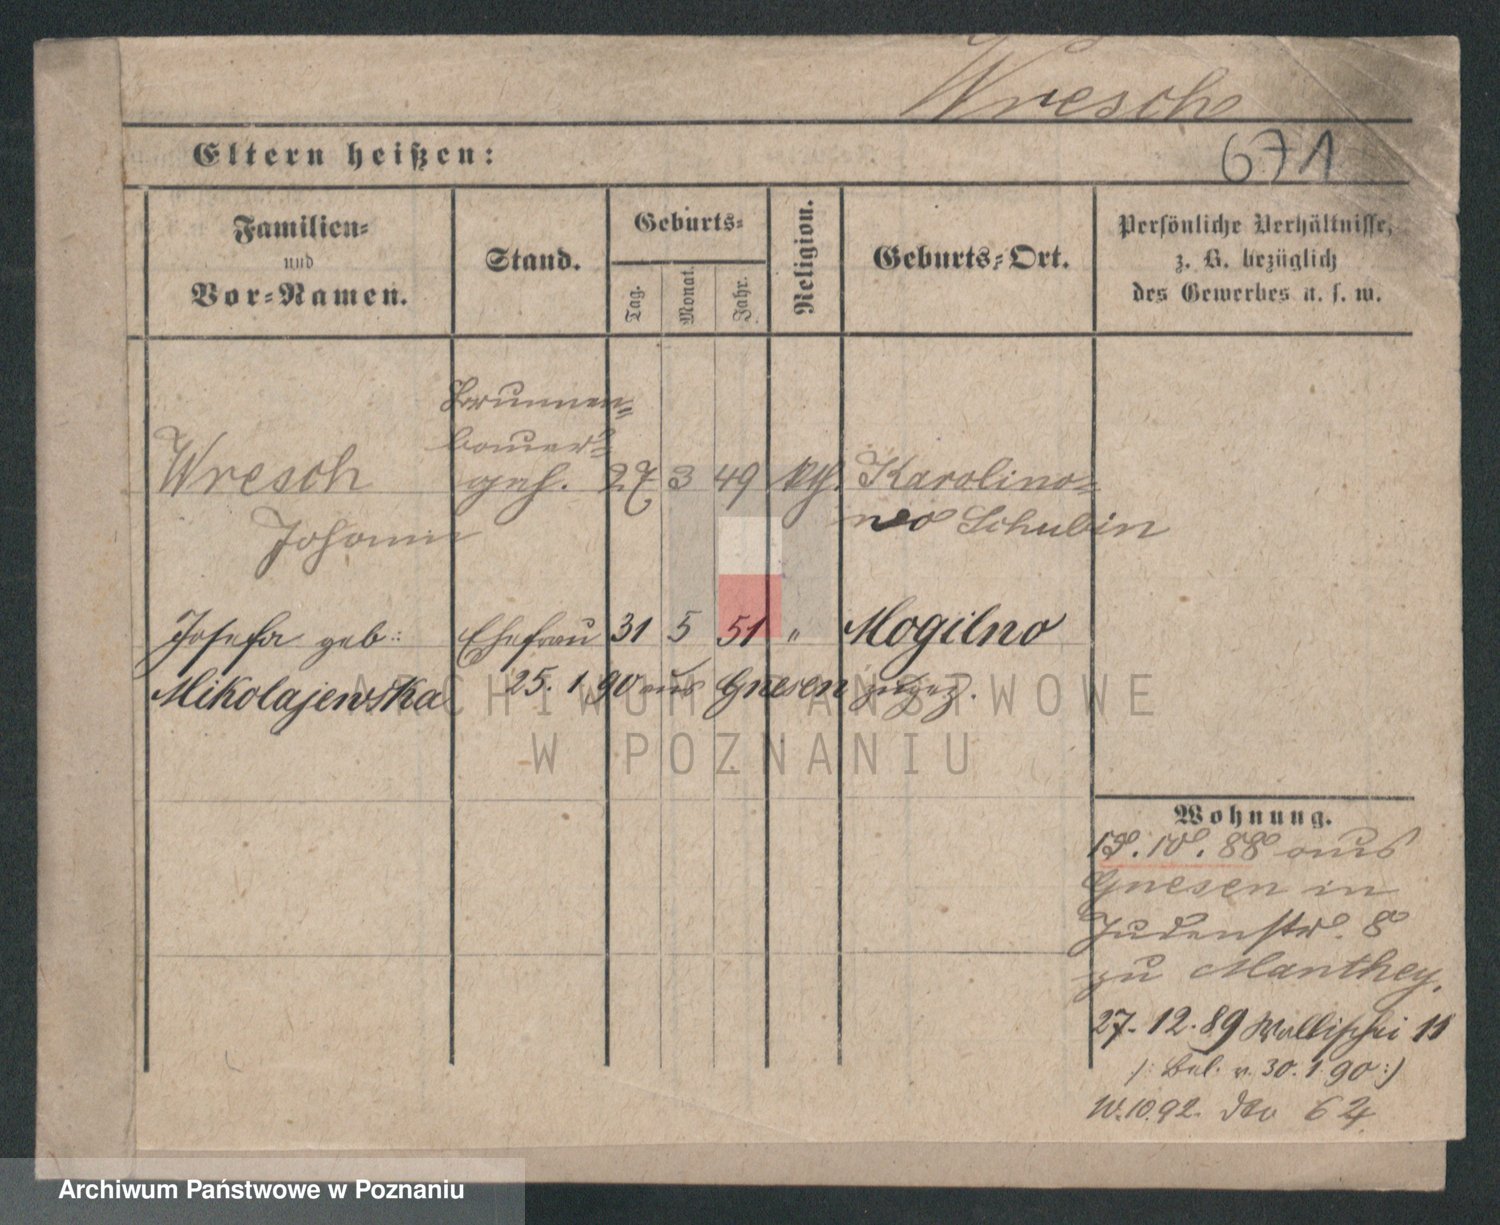 Wresch
671
Eltern heißen:
Familien=
und
Vor=Namen.
Stand.
Geburts=
Tag.
Monat.
Jahr.
Religion.
Geburts=Ort.
Persönliche Verhältnisse,
z. B. bezüglich
des Gewerbes u. s. w.
Brunnen=
bauer=
Wresch geh. 27 3 49 kth. Karolino=
Johann wo Schubin
Josefa geb: Ehefrau 31 5 51 " Mogilno
Mikolajewska 25. 1 90 aus Gnesen zugez.
ARCHIWUM PAŃSTWOWE
W POZNANIU
Wohnung.
10. 88 aus
Gnesen in
Judenstr. 8
zu Manthey.
27. 12. 89 Wallischei 11
/: Bel. v. 30. 1 90 :/
W. 10 92. dto 62
Archiwum Państwowe w Poznaniu